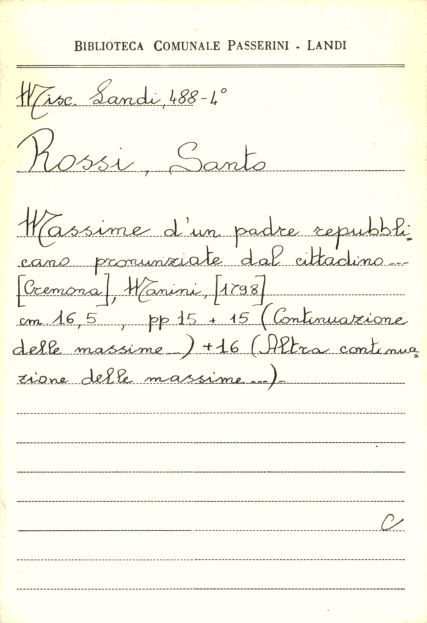 BIBLIOTECA COMUNALE PASSERINI - LANDI
Misc. Landi, 488-4°
Rossi, Santo
Massime d'un padre repubbli-
cano pronunziate dal cittadino...
[Cremona], Manini, [1798]
cm 16,5 , pp 15 + 15 (Continuazione
delle massime...) + 16 (Altra continua-
zione delle massime...).
C